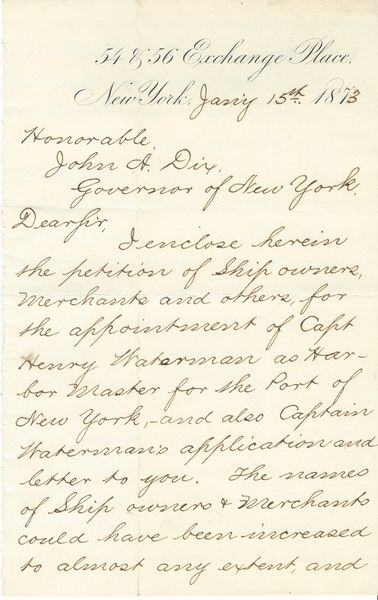 54 & 56 Exchange Place.
New York, Jan'y 15th. 1873
Honorable,
John A. Dix,
Governor of New York.
Dear Sir,
I enclose herein
the petition of Ship owners,
Merchants and others, for
the appointment of Capt
Henry Waterman as Har-
bor Master for the Port of
New York,-and also Captain
Waterman's application and
letter to you. The names
of Ship owners & Merchants
could have been increased
to almost any extent, and